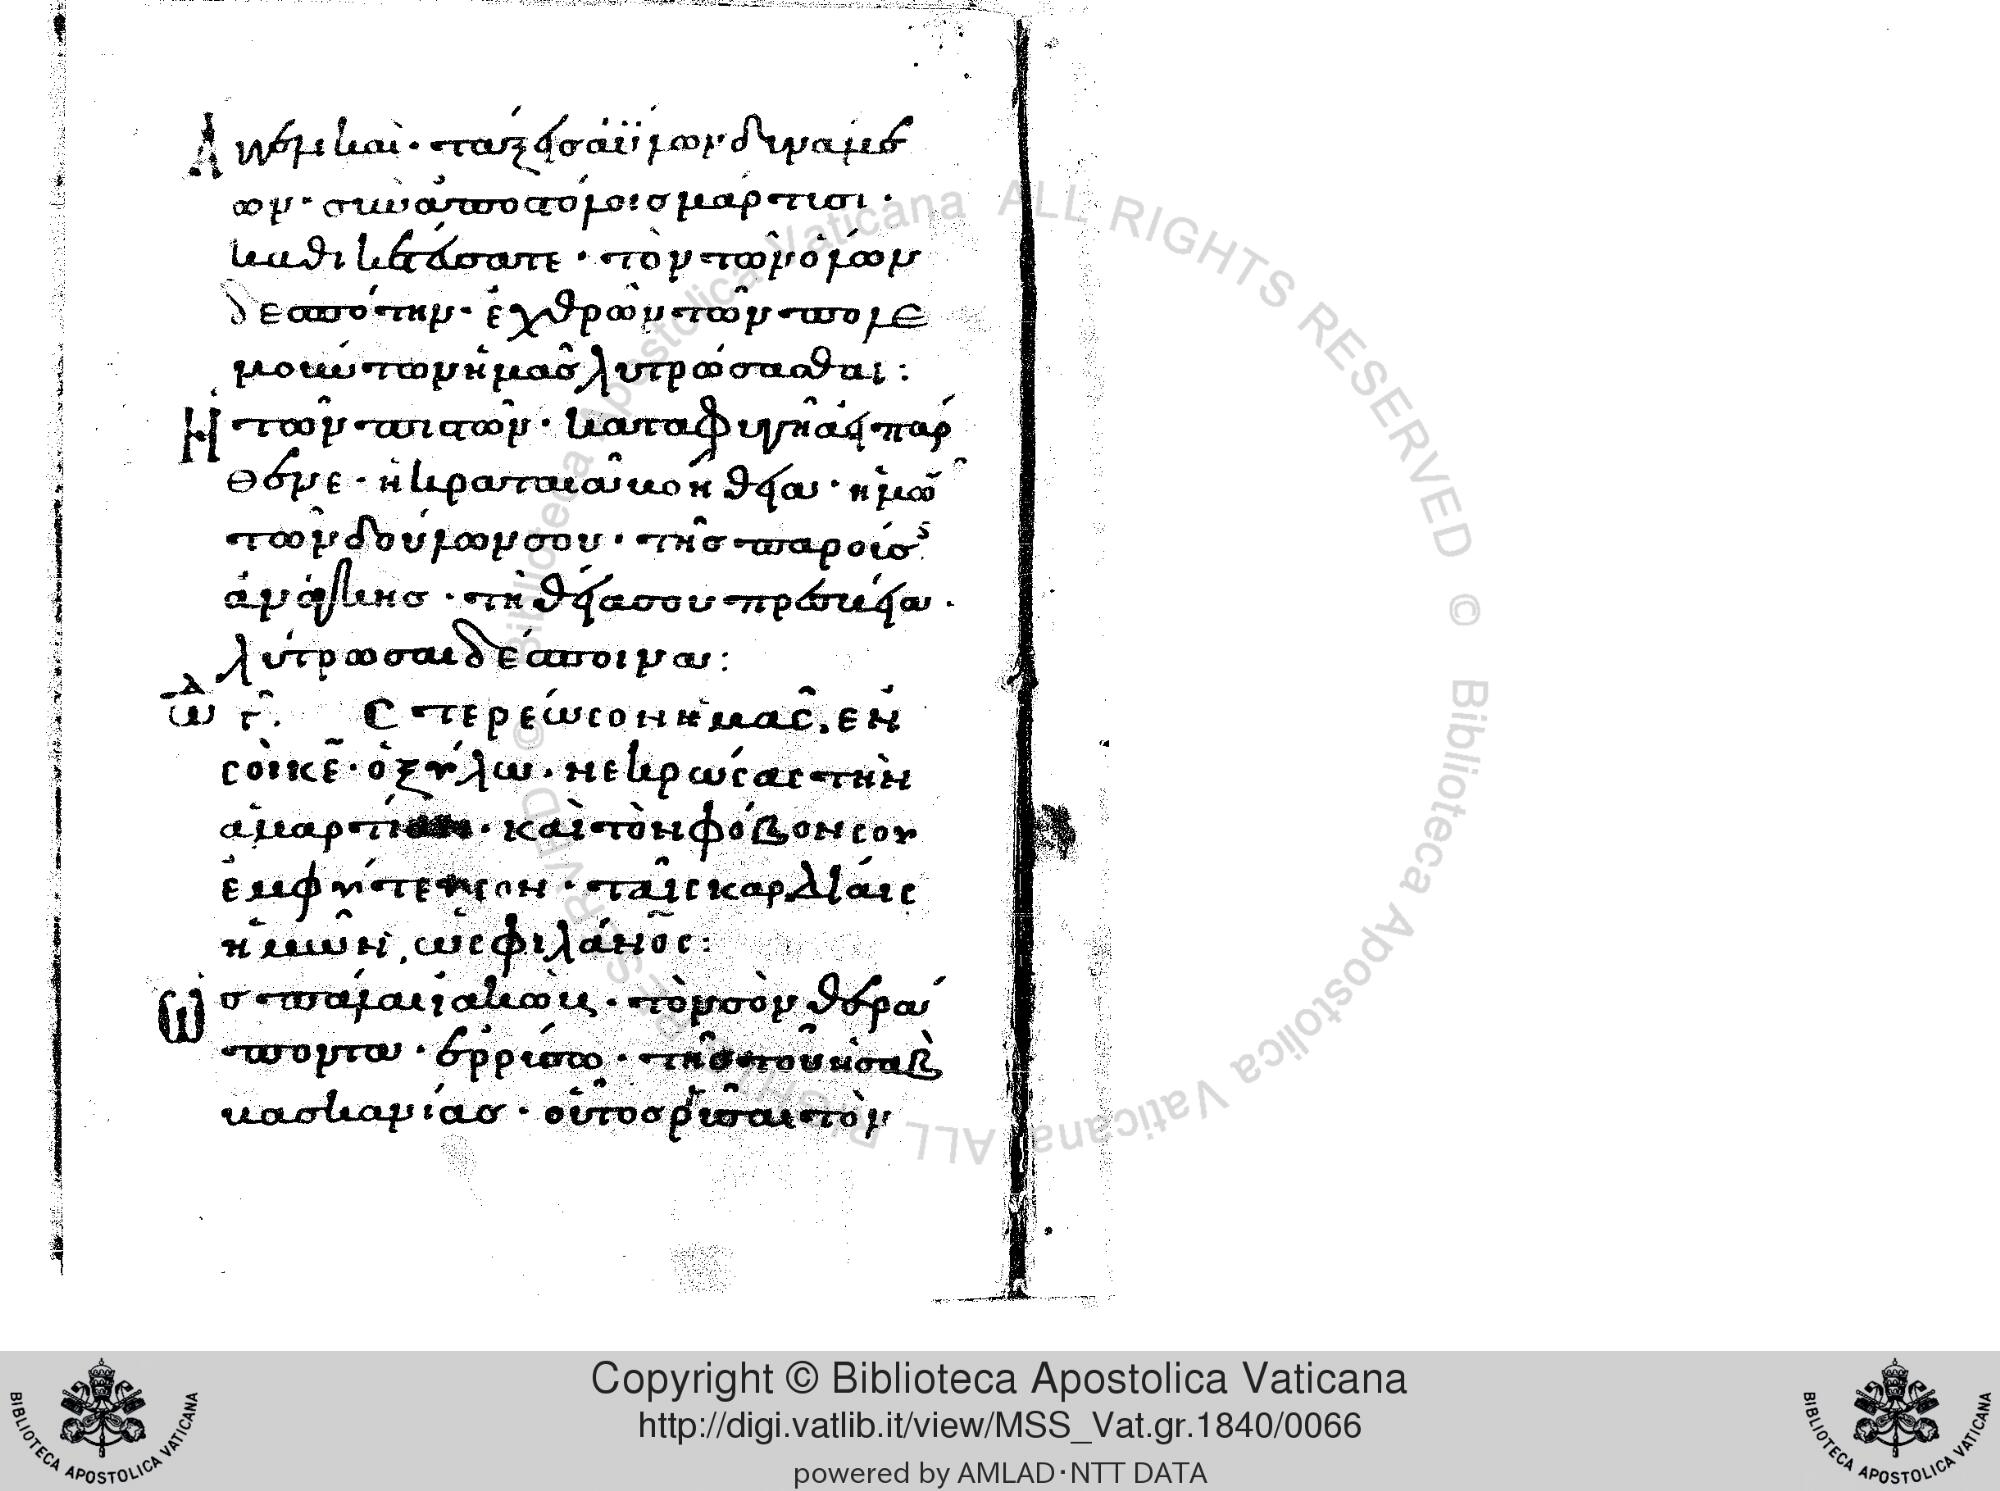 Ἀγγελικαὶ · τάξεις ἀΰλων δυνάμε
ων · σὺν ἀποστόλοις μάρτυσι ·
καθικετεύσατε · τὸν τῶν ὅλων
δεσπότην · ἐχθρῶν τῶν πολε
μούντων ἡμᾶς λυτρώσασθαι :
Ἡ τῶν πιστῶν · καταφυγὴ ἁει παρ
θένε · ἡ κραταιὰ βοήθεια · ἡμῶν
τῶν δούλων σου · τῆς παρούσ
ἀνάγκης · τῇ θεία σου πρεσβεία ·
λύτρωσαι δέσποινα :
ὠδ γ̄. Στερέωσον ἡμᾶς. ἐν
σοὶ κε̄ · ὁ ξύλω · νεκρώσας τὴν
ἁμαρτίαν · καὶ τὸν φόβον σου
ἐμφύτευσον · ταῖς καρδίαις
ἡμῶν, ὡς φιλάν̄ος :
Ὡς πάλαι ἰακὼβ · τὸν σὸν θερά
ποντα · ἐρρύσω · τῆς τοῦ ἡσαῦ
κακίας · οὕτος ῥῦσαι τὸν
Copyright © Biblioteca Apostolica Vaticana
http://digi.vatlib.it/view/MSS_Vat.gr.1840/0066
powered by AMLAD·NTT DATA
BIBLIOTECA APOSTOLICA VATICANA
BIBLIOTECA APOSTOLICA VATICANA
© Biblioteca Apostolica Vaticana ALL RIGHTS RESERVED © Biblioteca Apostolica Vaticana ALL RIGHTS RESERVED